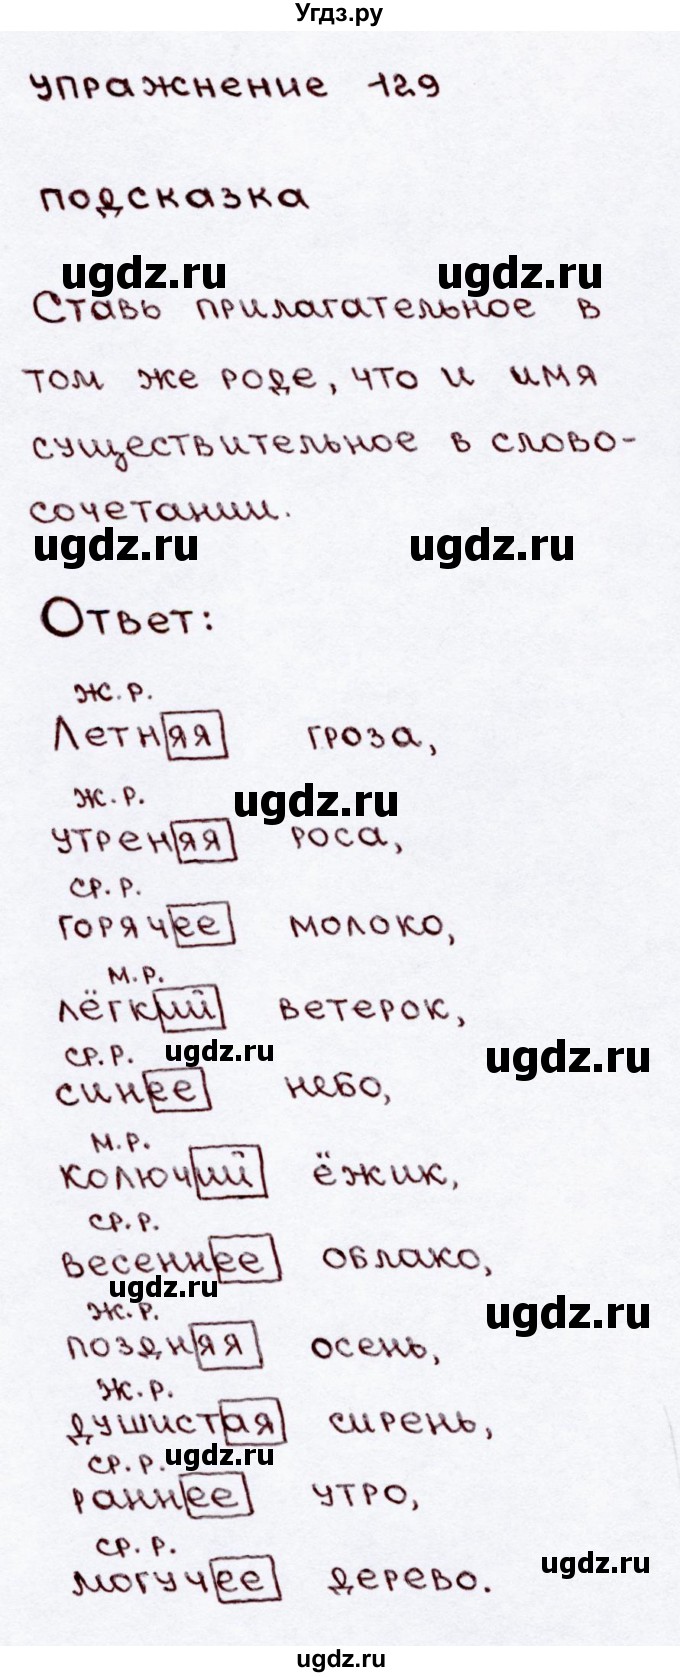 Угдз.ру
упражнение 129
подсказка
ugdz.ru ugdz.ru
Ставь прилагательное в
том же роде, что и имя
существительное в слово-
сочетании.
ugdz.ru ugdz.ru
Ответ:
ж.р.
Летняя гроза,
ж.р. ugdz.ru
утреняя роса,
ср.р.
горячее молоко,
м.р.
лёгкий ветерок,
ср.р. ugdz.ru ugdz.ru
синее небо,
м.р.
колючий ёжик,
ср.р.
весеннее облако,
ugdz.ru
ж.р. ugdz.ru
поздняя осень,
ж.р.
душистая сирень,
ср.р. ugdz.ru
раннее утро,
ср.р. ugdz.ru
могучее дерево.
ugdz.ru